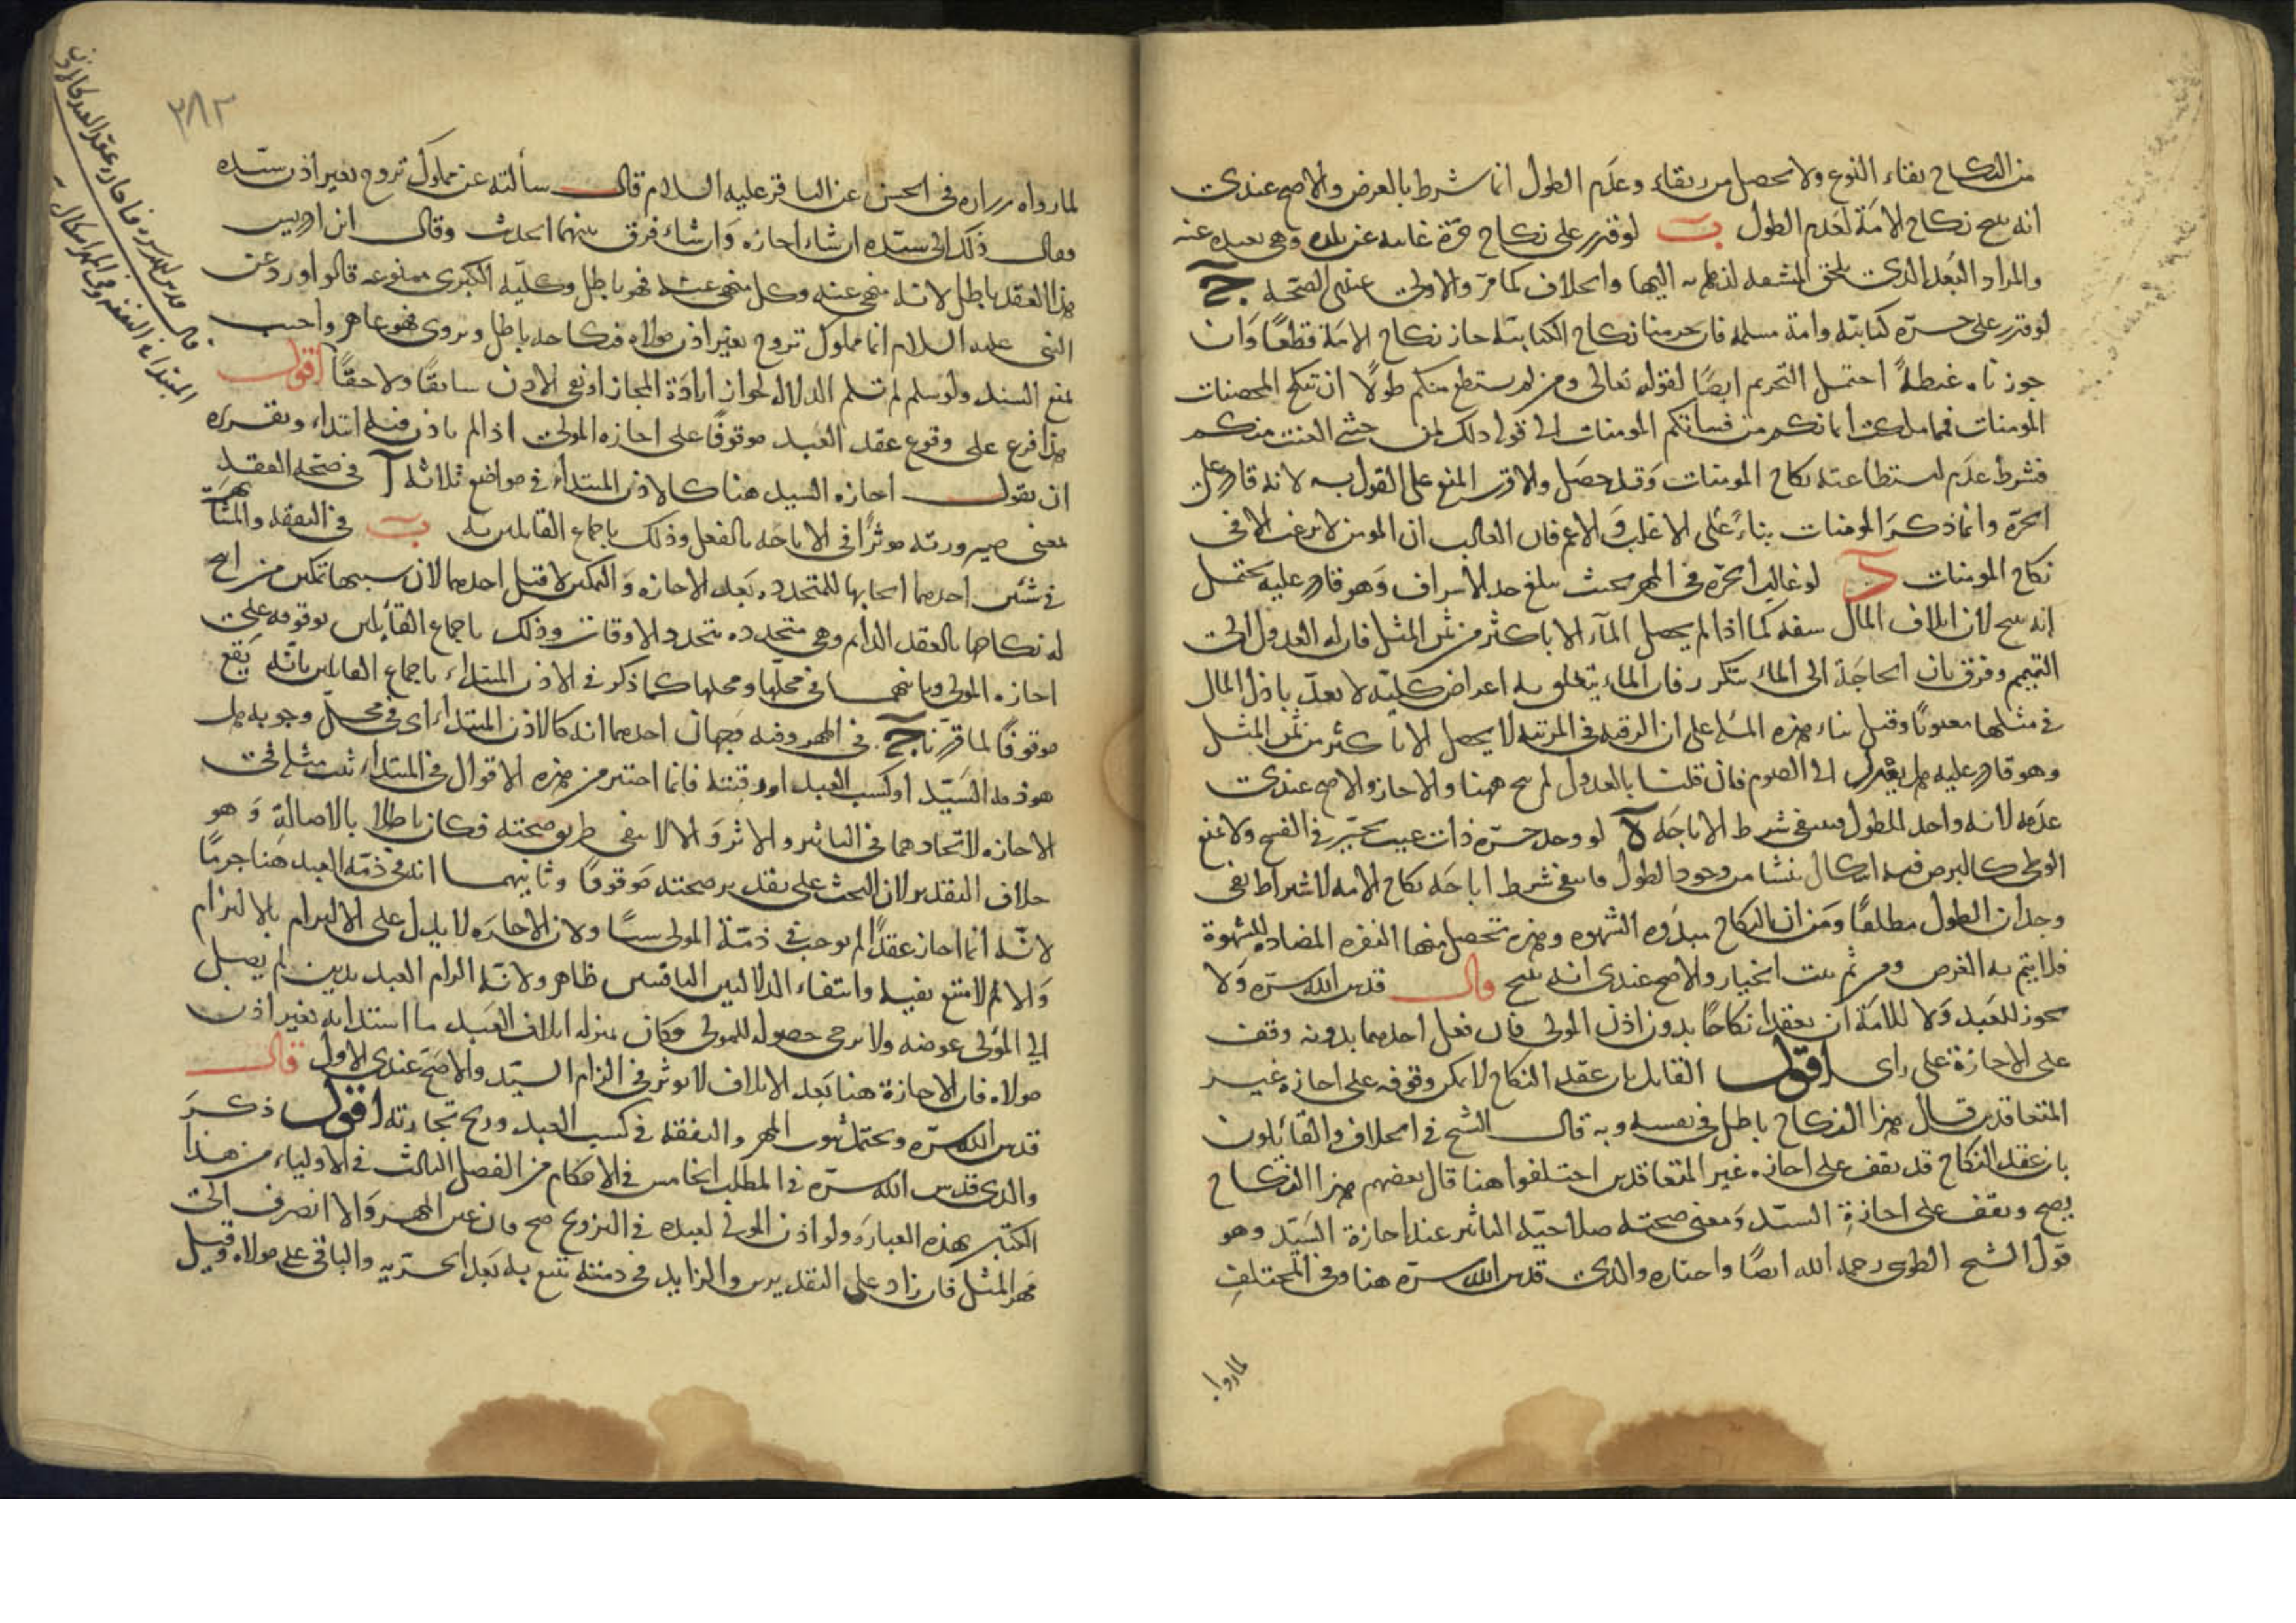 من النكاح بقاء النوع ولا يحصل من بقاء وعدم الطول انما شرط بالعرض والاصح عندى
انه يبيح نكاح الامة لعدم الطول ب لو قدر على نكاح حرة غايبه عن بلده وهى بعيده عنه
والمراد البعد الذى يلحق المشقه لذهابه اليها والخلاف كما مر والاولى عندى الصحه ج
لو قدر على حرة كتابيه وامة مسلمه فان حرمنا نكاح الكتابية جاز نكاح الامة قطعًا وان
جوزناه غبطةً احتمل التحريم ايضًا لقوله تعالى ومن لم يستطع منكم طولًا ان ينكح المحصنات
المومنات فمما ملكت ايمانكم من فتياتكم المومنات الى قوله ذلك لمن خشى العنت منكم
فشرط عدم استطاعته نكاح المومنات وقد حصل والاقرب المنع على القول به لانه قادر على
الحرة وانما ذكر المومنات بناءً على الاغلب والاعم فان الغالب ان المومن لا يرغب الا فى
نكاح المومنات د لو غالت الحرة فى المهر بحيث يبلغ حد الاسراف وهو قادر عليه يحتمل
انه يبيح لان اتلاف المال سفه كما اذا لم يحصل المآء الا باكثر من ثمن المثل فان له العدول الى
التيمم وفرق بان الحاجة الى الماء يتكرر فان الماء يتعلق به اعراض كلية لا يعد باذل المال
فى مثلها مغبونًا وقيل بناء هذه المسله على ان الرقبه فى المرتبه لا يحصل الا باكثر من ثمن المثل
وهو قادر عليه هل يعدل الى الصوم فان قلنا بالعدول لم يبح ههنا والا جاز والاصح عندى
عدمه لانه واحد للطول فينتفى شرط الاباحة ه لو وجد حرة ذات عيب يتخير فى الفسخ ولا يمنع
الوطى كالبرص ففيه اشكال ينشا من وجود الطول فانتفى شرط اباحة نكاح الامه لاشتراط نفى
وجدان الطول مطلقًا ومن ان النكاح مبدؤه الشهوه وهذه تحصل منها النفره المضاده للشهوة
فلا يتم به الغرض ومن ثم ثبت الخيار والاصح عندى انه يبيح قال قدس الله سره ولا
يجوز للعبد ولا للامة ان يعقدا نكاحًا بدون اذن المولى فان فعل احدهما بدونه وقف
على الاجازة على راى اقول القايل بان عقد النكاح لا يمكن وقوفه على اجازه غير
المتعاقدين قال هذا النكاح باطل فى نفسه وبه قال الشيخ فى الخلاف والقائلون
بان عقد النكاح قد يقف على اجازه غير المتعاقدين اختلفوا هنا قال بعضهم هذا النكاح
يصح ويقف على اجازة السيد ومعنى صحته صلاحيه التاثير عند اجازة السيد وهو
قول الشيخ الطوسى رحمه الله ايضًا واختاره والدى قدس الله سره هنا وفى المختلف
لما رواه
٢٨٢
لما رواه زراره فى الحسن عن الباقر عليه السلام قال سألته عن مملوك تزوج بغير اذن سيده
فقال ذلك الى سيده ان شاء اجازه وان شاء فرق بينهما الحديث وقال ابن ادريس
هذا العقد باطل لانه منهى عنه وكل منهى عنه فهو باطل وكلية الكبرى ممنوعه قالوا ورد عن
النبى عليه السلام ايما مملوك تزوج بغير اذن مولاه فنكاحه باطل وروى فهو عاهر واجيب
بمنع السند ولو سلم لم تسلم الدلاله لجواز ارادة المجاز او نفى الاذن سابقًا ولاحقًا اقول
هذا فرع على وقوع عقد العبد موقوفًا على اجازه المولى اذا لم ياذن فيه ابتداء وتقريره
ان يقول اجازه السيد هنا كالاذن المبتداء فى مواضع ثلاثه آ فى صحه العقد
بمعنى صيرورته موثرًا فى الاباحه بالفعل وذلك باجماع القايلين به ب فى النفقه والمشابهة
فى شئين احدهما ايجابها للمتجدده بعد الاجازه والتمكين لا قبل احدهما لان سببها تمكين من ابيح
له نكاحها بالعقد الدايم وهى متجدده بتجدد الاوقات وذلك باجماع القائلين بوقوفه على
اجازه المولى وثانيهما فى محلها ومحلها كما ذكر فى الاذن المبتداء باجماع القائلين بانه يقع
موقوفًا لما قررنا ج فى المهر وفيه وجهان احدهما انه كالاذن المبتداء اى فى محل وجوبه هل
هو ذمه السيد او كسب العبد او رقبته فايما اختير من هذه الاقوال فى المبتداء ثبت مثله فى
الاجازه لاتحادهما فى التاثير والاثر والا لانتفى طريق صحته فكان باطلا بالاصالة وهو
خلاف التقدير لان البحث على تقدير صحته موقوفًا وثانيهما انه فى ذمه العبد هنا جزمًا
لانه انما اجاز عقدًا لم يوجب فى ذمة المولى شيئًا ولان الاجازه لا يدل على الالتزام بالالتزام
والا لم لامتنع نفيه وانتفاء الدلالتين الباقيتين ظاهر ولانه الزام العبد بدين لم يصل
الى المولى عوضه ولا يرجى حصوله للمولى وكان بمنزله اتلاف العبد ما استدانه بغير اذن
مولاه فان الاجازة هنا بعد الاتلاف لا يوثر فى الزام السيد والاصح عندى الاول قال
قدس الله سره ويحتمل ثبوت المهر والنفقه فى كسب العبد وربح تجارته اقول ذكر
والدى قدس الله سره فى المطلب الخامس فى الاحكام من الفصل الثالث فى الاولياء من هذا
الكتاب بهذه العباره ولو اذن المولى لعبده فى التزويج صح فان عين المهر والا انصرف الى
مهر المثل فان زاد على التقديرين والزايد فى ذمته تتبع به بعد الحريه والباقى على مولاه وقيل
قال قدس الله سره فاجازه عقد العبد كالاذن
المبتدا فى النفقه وفى المهر اشكال